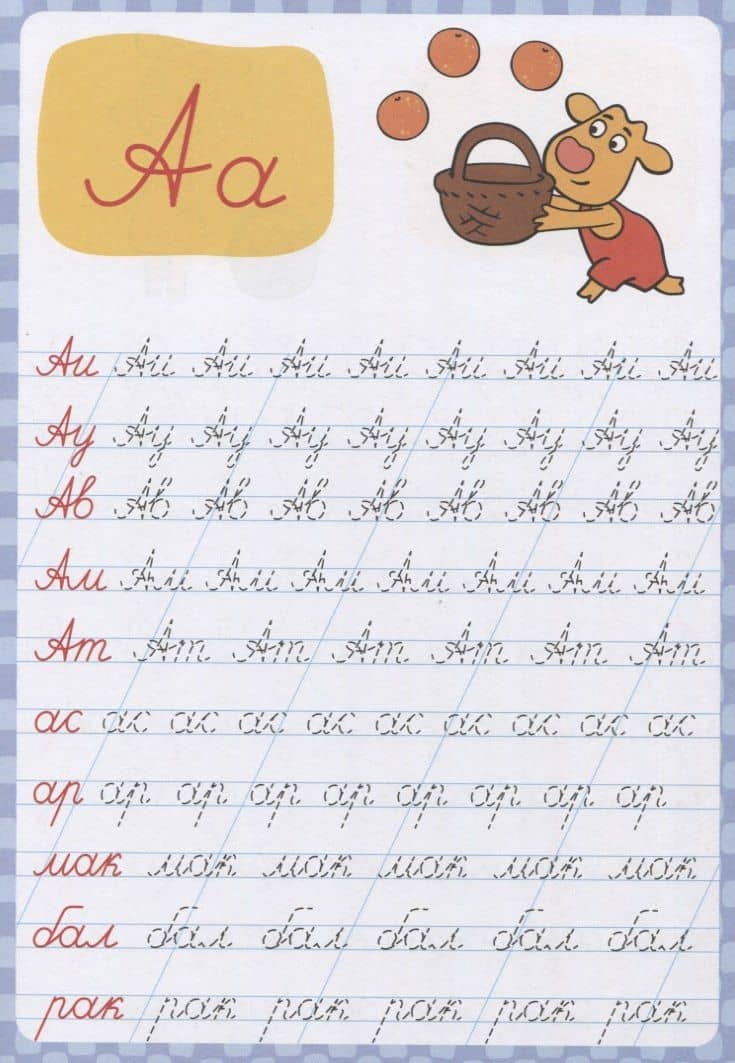 Аа
Аи Аи Аи Аи Аи Аи Аи Аи Аи
Ау Ау Ау Ау Ау Ау Ау Ау Ау
Ав Ав Ав Ав Ав Ав Ав Ав Ав
Ам Ам Ам Ам Ам Ам Ам Ам
Ат Ат Ат Ат Ат Ат Ат
ас ас ас ас ас ас ас ас ас ас
ар ар ар ар ар ар ар ар ар
мак мак мак мак мак мак
бал бал бал бал бал бал
рак рак рак рак рак рак